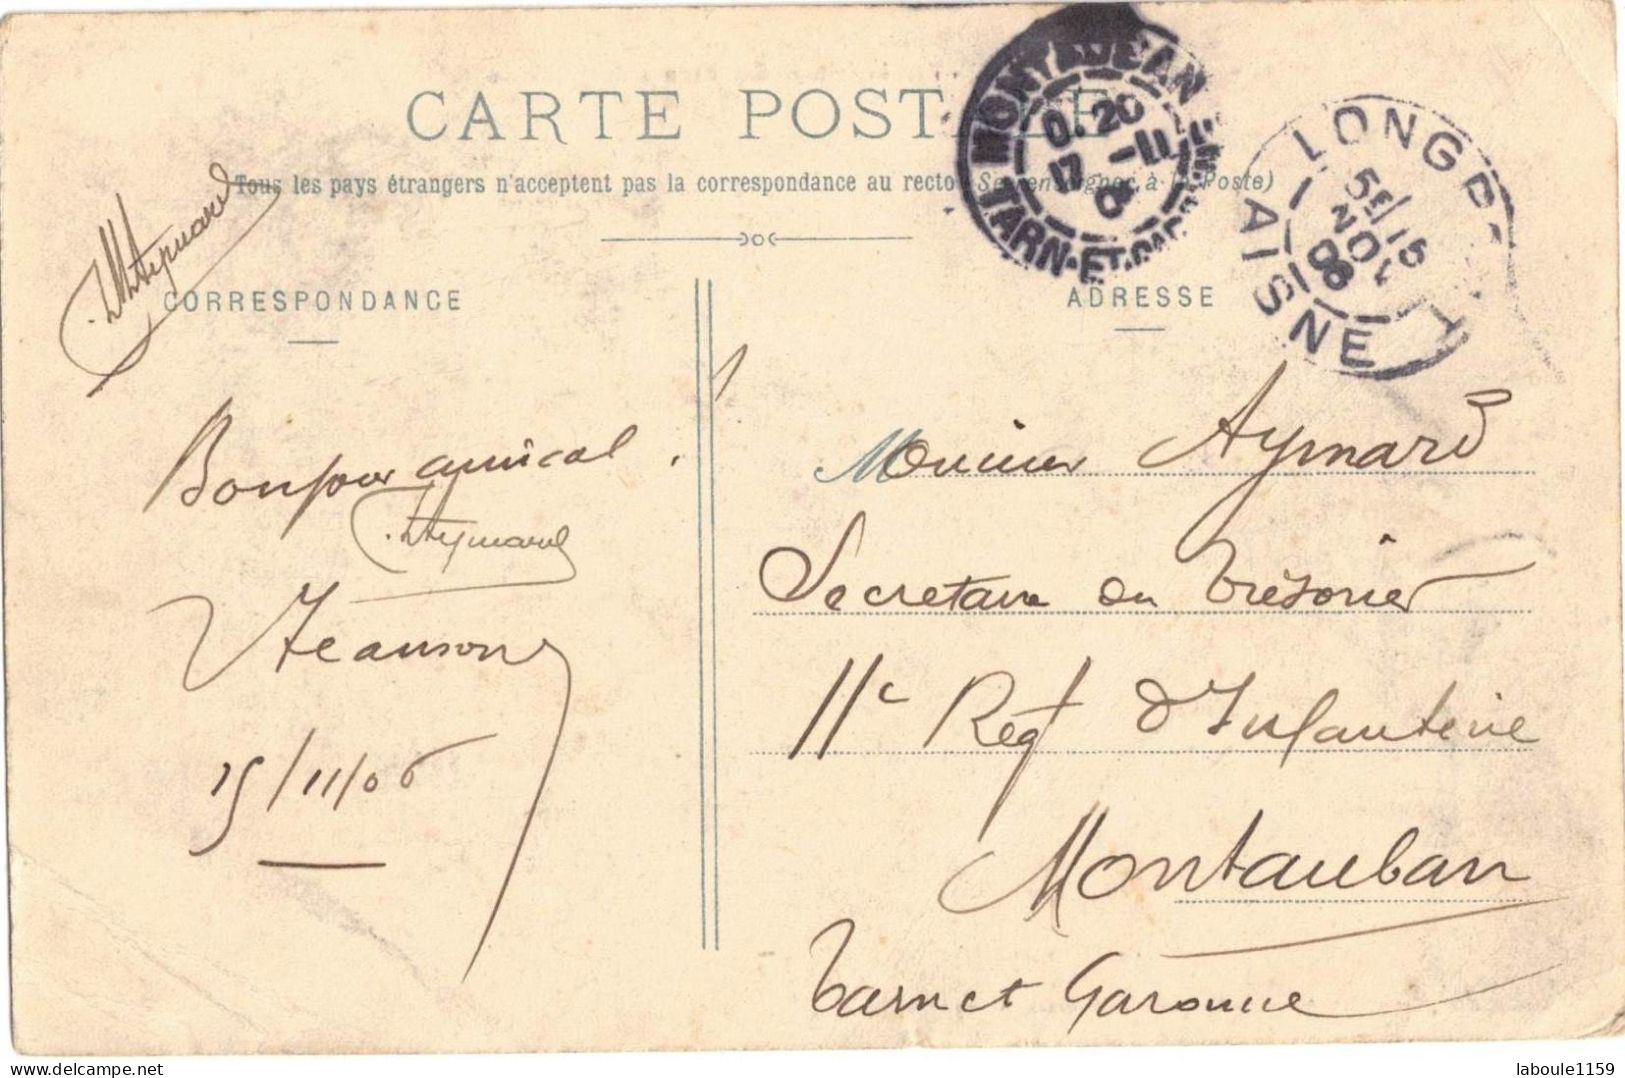 CARTE POSTALE
Tous les pays étrangers n'acceptent pas la correspondance au recto (Se renseigner à la Poste)
CORRESPONDANCE
ADRESSE
MONTAUBAN
TARN-ET-GAR
0.20
17 -11
LONGP
AISNE
5E/15
NOV
Aymard
Bonjour amical.
Aymard
15/11/06
Monsieur Aymard
Secretaire du trésorier
11e Regt d'Infanterie
Montauban
Tarn et Garonne
laboule1159